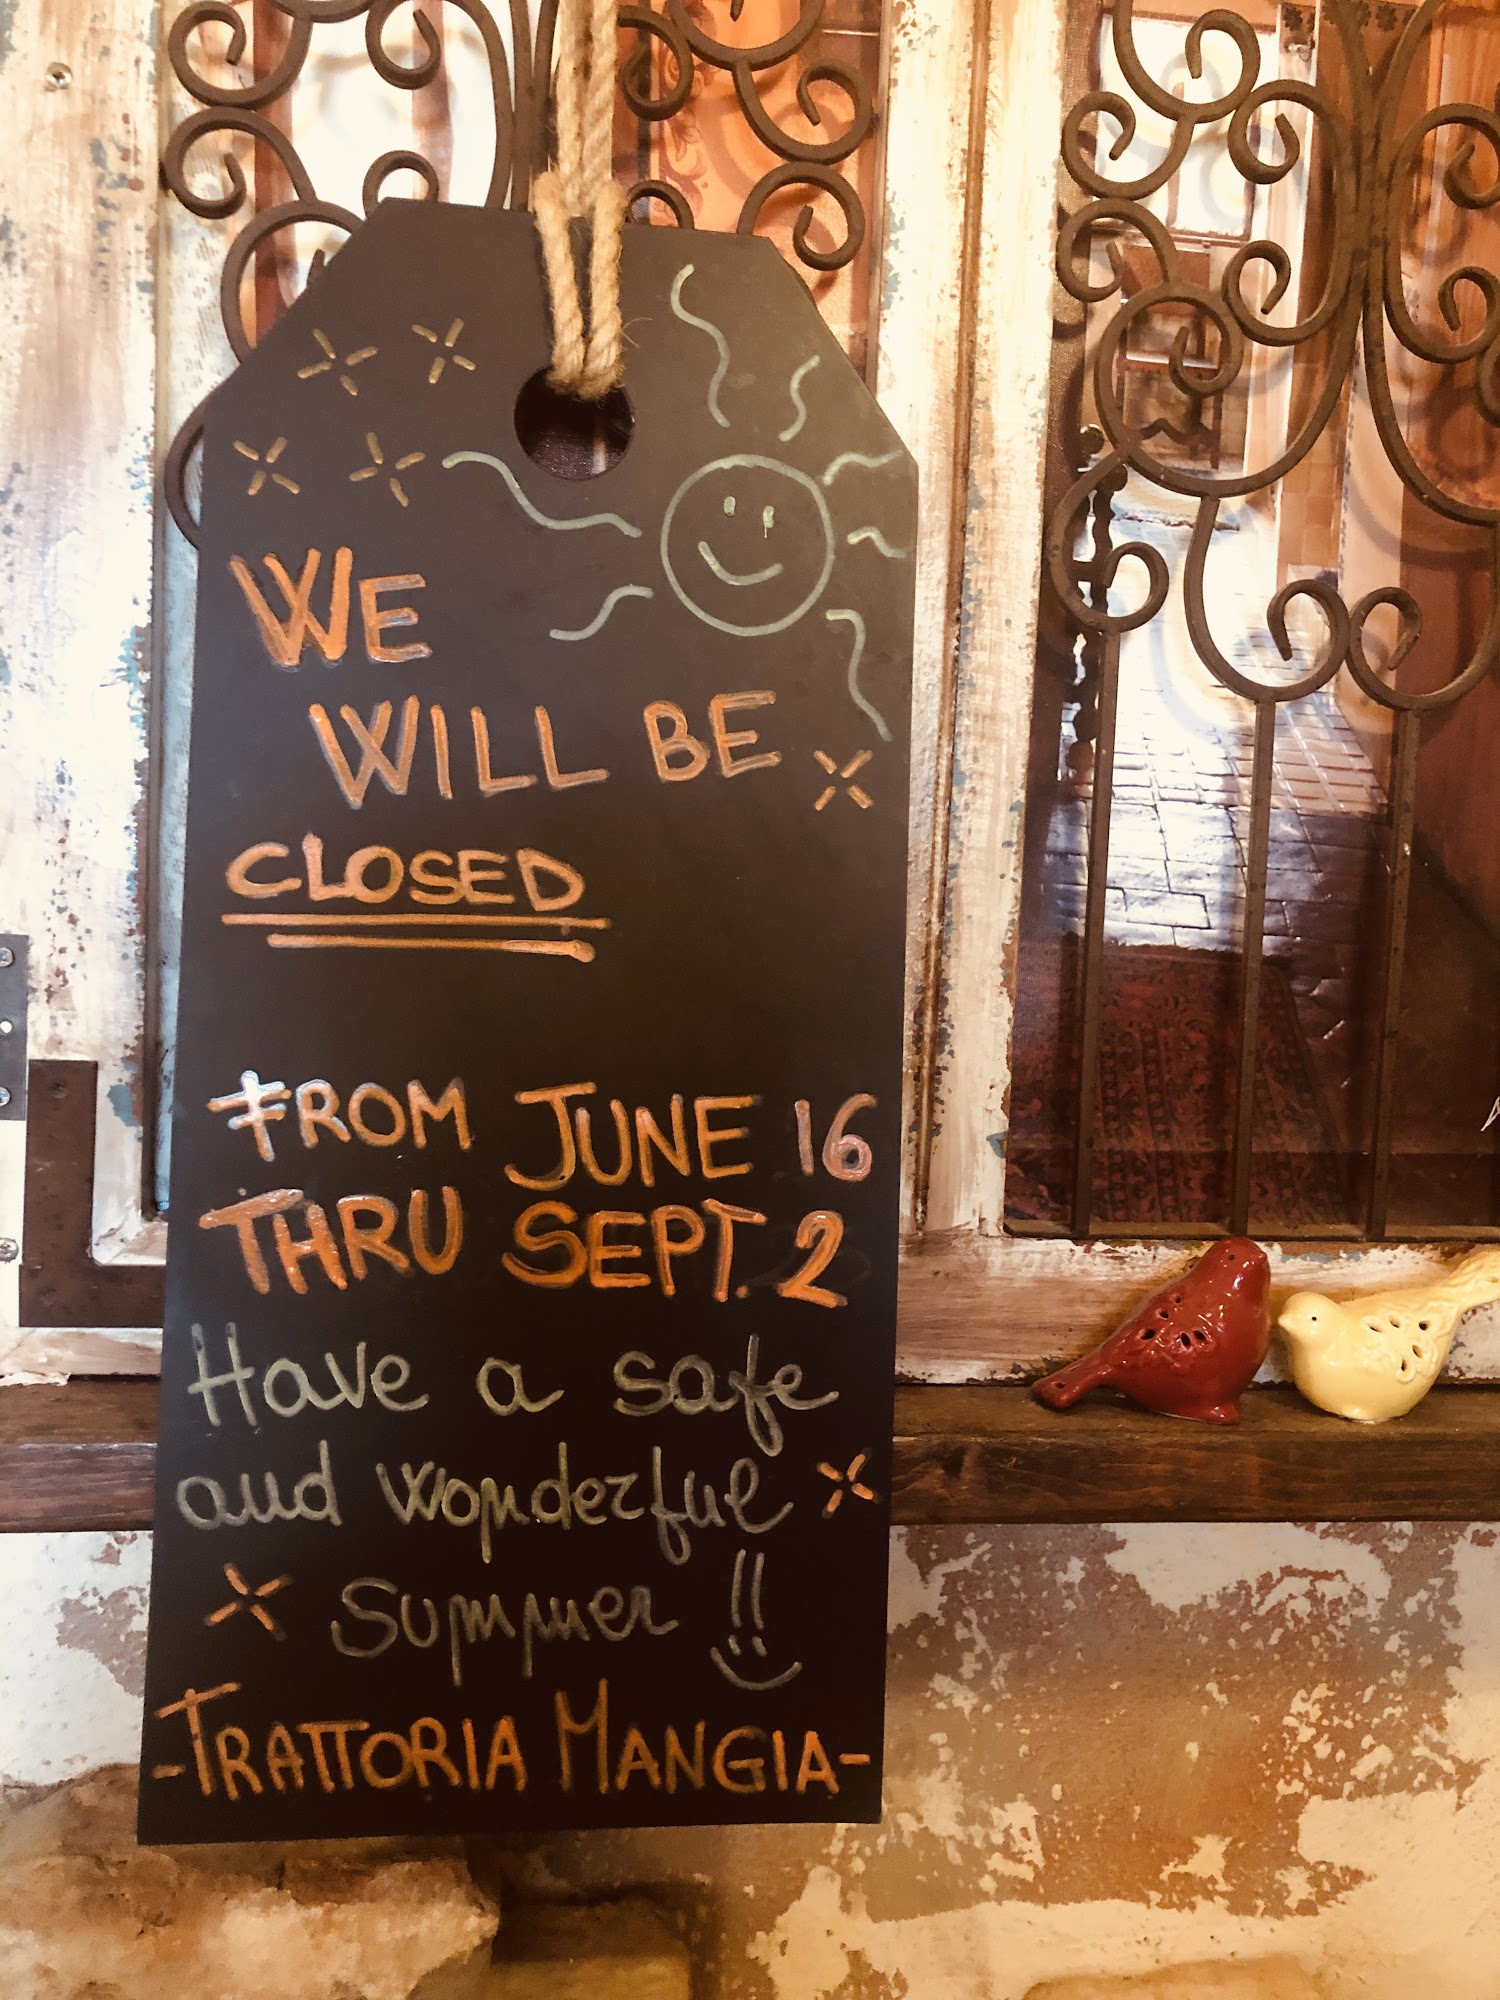 WE
WILL BE
CLOSED
FROM JUNE 16
THRU SEPT. 2
Have a safe
and wonderful
summer !!
-TRATTORIA MANGIA-